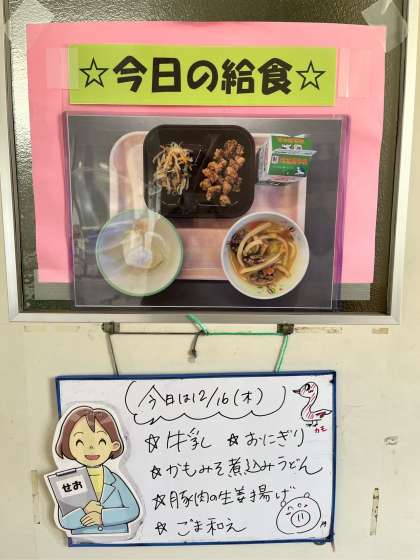 ☆今日の給食☆
今日は12/16(木)
☆牛乳 ☆おにぎり
カモ
☆かもみそ煮込みうどん
☆豚肉の生姜揚げ
☆ごま和え
せお